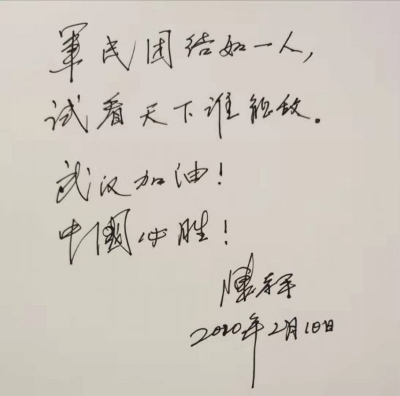 軍民团结如一人，
试看天下谁能敌。
武汉加油！
中國必胜！
2020年2月10日